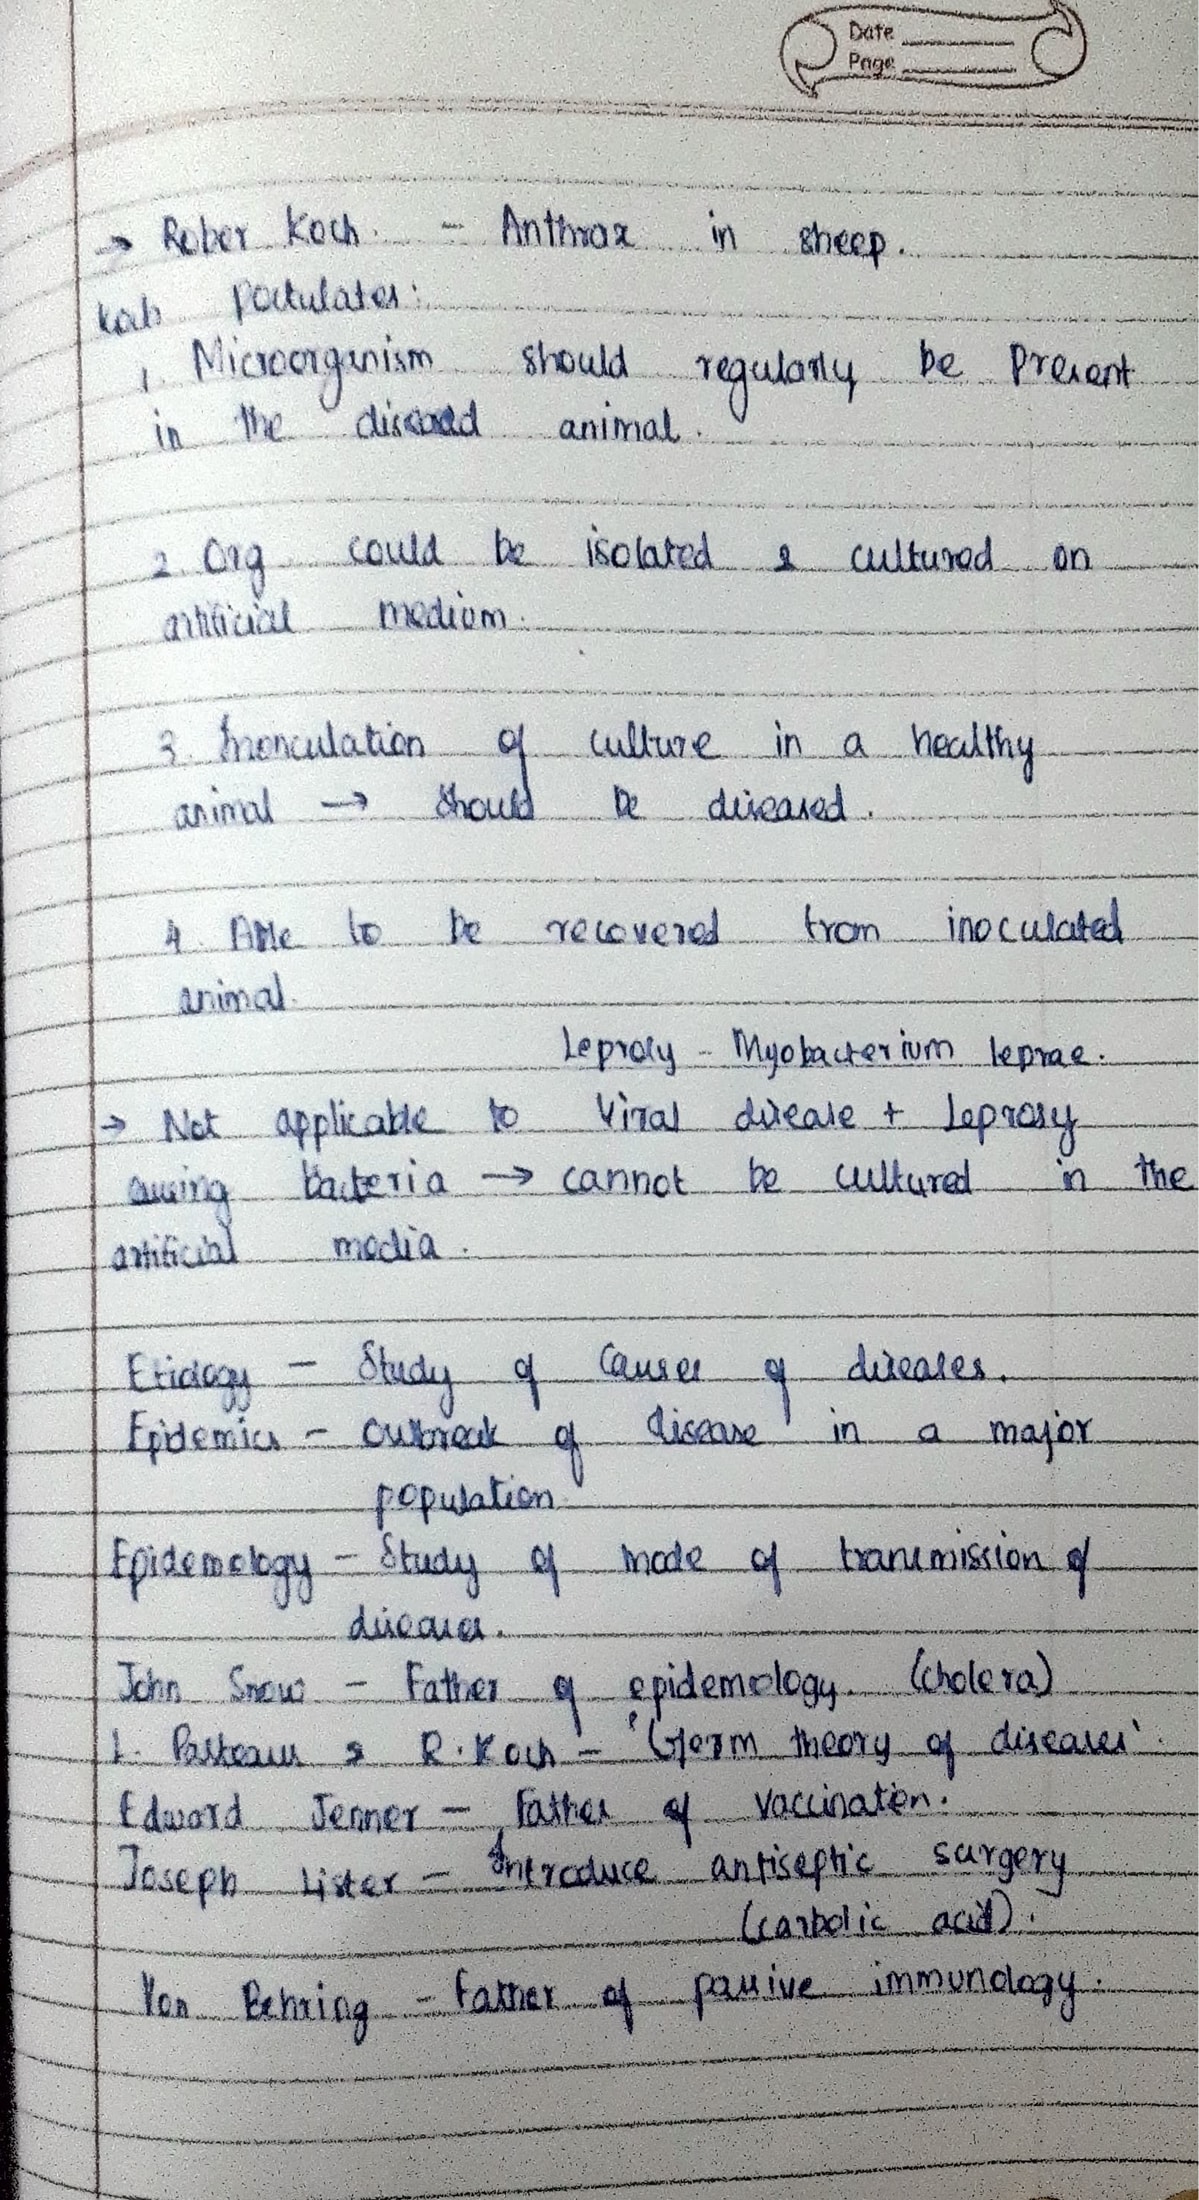 Date
Page
→ Rober Koch. - Anthrax in sheep.
Koch Postulates:
1. Microorganism should regularly be Present
in the diseased animal.
2. Org could be isolated & cultured on
artificial medium.
3. Inonculation of culture in a healthy
animal → Should be diseased.
4. Able to be recovered from inoculated
animal.
Leprosy - Myobacterium leprae.
→ Not applicable to Viral disease + Leprosy
causing bacteria → cannot be cultured in the
artificial media.
Etiology - Study of Causes of diseases.
Epidemics - Outbreak of disease in a major
population
Epidemology - Study of mode of transmission of
diseases.
John Snow - Father of epidemology. (cholera)
L. Pasteaur & R. Koch - 'Germ theory of diseases'.
Edward Jenner - Father of vaccination.
Joseph Lister - Introduce antiseptic surgery
(carbolic acid).
Von Behring - Father of passive immunology.